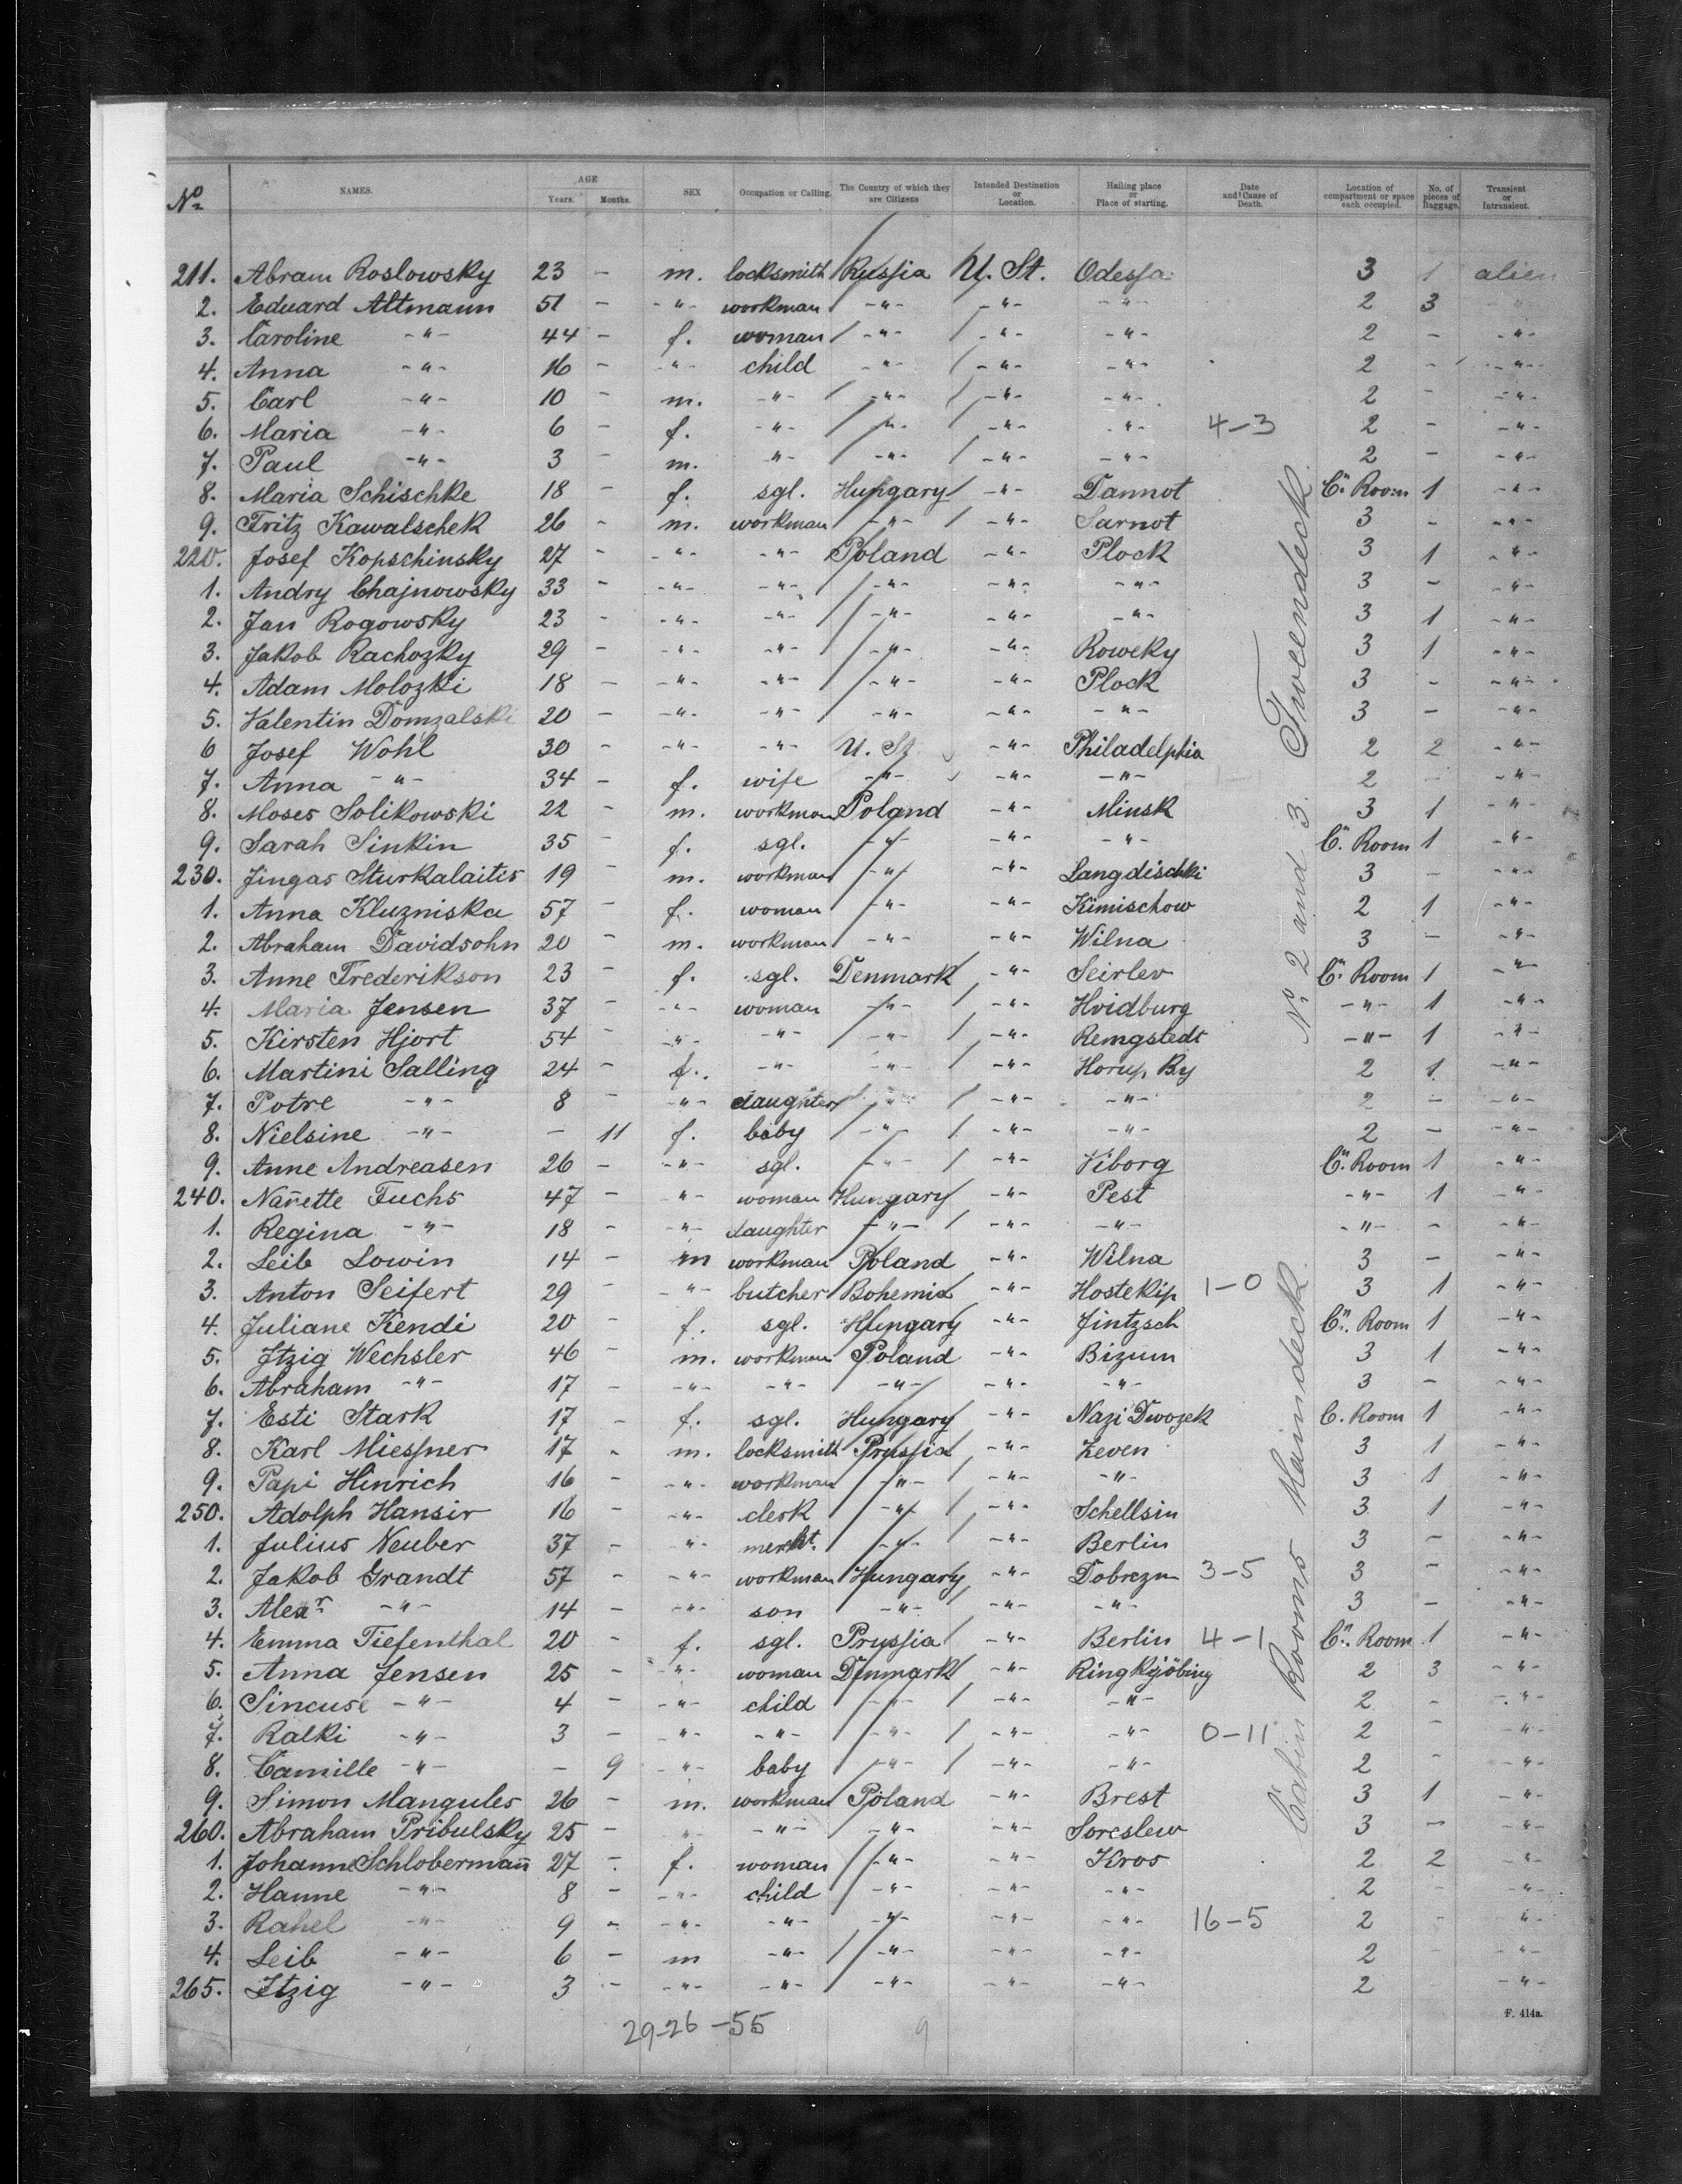 No NAMES. AGE Years. Months. SEX Occupation or Calling. The Country of which they are Citizens Intended Destination or Location. Hailing place or Place of starting. Date and Cause of Death. Location of compartment or space each occupied. No. of pieces of Baggage. Transient or Intransient.
211. Abram Roslowsky 23 - m. locksmith Russia U. St. Odessa 3 1 alien
2. Eduard Altmann 51 - -"- workman -"- -"- -"- 2 3 -"-
3. Caroline -"- 44 - f. woman -"- -"- -"- 2 - -"-
4. Anna -"- 16 - -"- child -"- -"- -"- 2 - -"-
5. Carl -"- 10 - m. -"- -"- -"- -"- 2 - -"-
6. Maria -"- 6 - f. -"- -"- -"- -"- 4-3 2 - -"-
7. Paul -"- 3 - m. -"- -"- -"- -"- 2 - -"-
8. Maria Schischke 18 - f. sgl. Hungary -"- Dannot Cn. Room 1 -"-
9. Fritz Kawalschek 26 - m. workman -"- -"- Sarnot 3 - -"-
220. Josef Kopschinsky 27 - -"- -"- Poland -"- Plock 3 1 -"-
1. Andry Chajnowsky 33 - -"- -"- -"- -"- -"- 3 - -"-
2. Jan Rogowsky 23 - -"- -"- -"- -"- -"- 3 1 -"-
3. Jakob Rachozky 29 - -"- -"- -"- -"- Roweky 3 1 -"-
4. Adam Molozki 18 - -"- -"- -"- -"- Plock 3 - -"-
5. Valentin Domzalski 20 - -"- -"- -"- -"- -"- 3 - -"-
6 Josef Wohl 30 - -"- -"- U. St. -"- Philadelphia 2 2 -"-
7. Anna -"- 34 - f. wife -"- -"- -"- 2 - -"-
8. Moses Solikowski 22 - m. workman Poland -"- Minsk 3 1 -"-
9. Sarah Sinkin 35 - f. sgl. -"- -"- -"- Cn. Room 1 -"-
230. Jingas Sturkalaitis 19 - m. workman -"- -"- Langdischki 3 - -"-
1. Anna Kluzniska 57 - f. woman -"- -"- Kimischow 2 1 -"-
2. Abraham Davidsohn 20 - m. workman -"- -"- Wilna 3 - -"-
3. Anne Frederikson 23 - f. sgl. Denmark -"- Seirlev Cn. Room 1 -"-
4. Maria Jensen 37 - -"- woman -"- -"- Hvidburg -"- 1 -"-
5. Kirsten Hjort 54 - -"- -"- -"- -"- Remgstedt -"- 1 -"-
6. Martini Salling 24 - f. -"- -"- -"- Horup By 2 1 -"-
7. Potre -"- 8 - -"- daughter -"- -"- -"- 2 - -"-
8. Nielsine -"- - 11 f. baby -"- -"- -"- 2 - -"-
9. Anne Andreasen 26 - -"- sgl. -"- -"- Viborg Cn. Room 1 -"-
240. Nan̄ette Fuchs 47 - -"- woman Hungary -"- Pest -"- 1 -"-
1. Regina -"- 18 - -"- daughter -"- -"- -"- -"- - -"-
2. Leib Lowin 14 - m workman Poland -"- Wilna 3 - -"-
3. Anton Seifert 29 - -"- butcher Bohemia -"- Hostekip 1-0 3 1 -"-
4. Juliane Kendi 20 - f. sgl. Hungary -"- Jintzsch Cn. Room 1 -"-
5. Itzig Wechsler 46 - m. workman Poland -"- Bizum 3 1 -"-
6. Abraham -"- 17 - -"- -"- -"- -"- -"- 3 - -"-
7. Esti Stark 17 - f. sgl. Hungary -"- Nazi Dwozek C. Room 1 -"-
8. Karl Miessner 17 - m. locksmith Prussia -"- Zeven 3 1 -"-
9. Papi Hinrich 16 - -"- workman -"- -"- -"- 3 1 -"-
250. Adolph Hansir 16 - -"- clerk -"- -"- Schellsin 3 1 -"-
1. Julius Neuber 37 - -"- mercht. -"- -"- Berlin 3 - -"-
2. Jakob Grandt 57 - -"- workman Hungary -"- Dobrezn 3-5 3 - -"-
3. Alexr. -"- 14 - -"- son -"- -"- -"- 3 - -"-
4. Emma Tiefenthal 20 - f. sgl. Prussia -"- Berlin 4-1 Cn. Room 1 -"-
5. Anna Jensen 25 - -"- woman Denmark -"- Ringkjöbing 2 3 -"-
6. Sincuse -"- 4 - -"- child -"- -"- -"- 2 - -"-
7. Ralki -"- 3 - -"- -"- -"- -"- -"- 0-11 2 - -"-
8. Camille -"- - 9 -"- baby -"- -"- -"- 2 - -"-
9. Simon Mangules 26 - m. workman Poland -"- Brest 3 1 -"-
260. Abraham Pribulsky 25 - -"- -"- -"- -"- Soreslew 3 - -"-
1. Johanne Schlobermañ 27 - f. woman -"- -"- Kros 2 2 -"-
2. Hanne -"- 8 - -"- child -"- -"- -"- 2 - -"-
3. Rahel -"- 9 - -"- -"- -"- -"- -"- 16-5 2 - -"-
4. Leib -"- 6 - m -"- -"- -"- -"- 2 - -"-
265. Itzig -"- 3 - -"- -"- -"- -"- -"- 2 -"-
Cabin Rooms Maindeck. No 2 and 3. Tweendeck.
29-26-55 9
F. 414a.